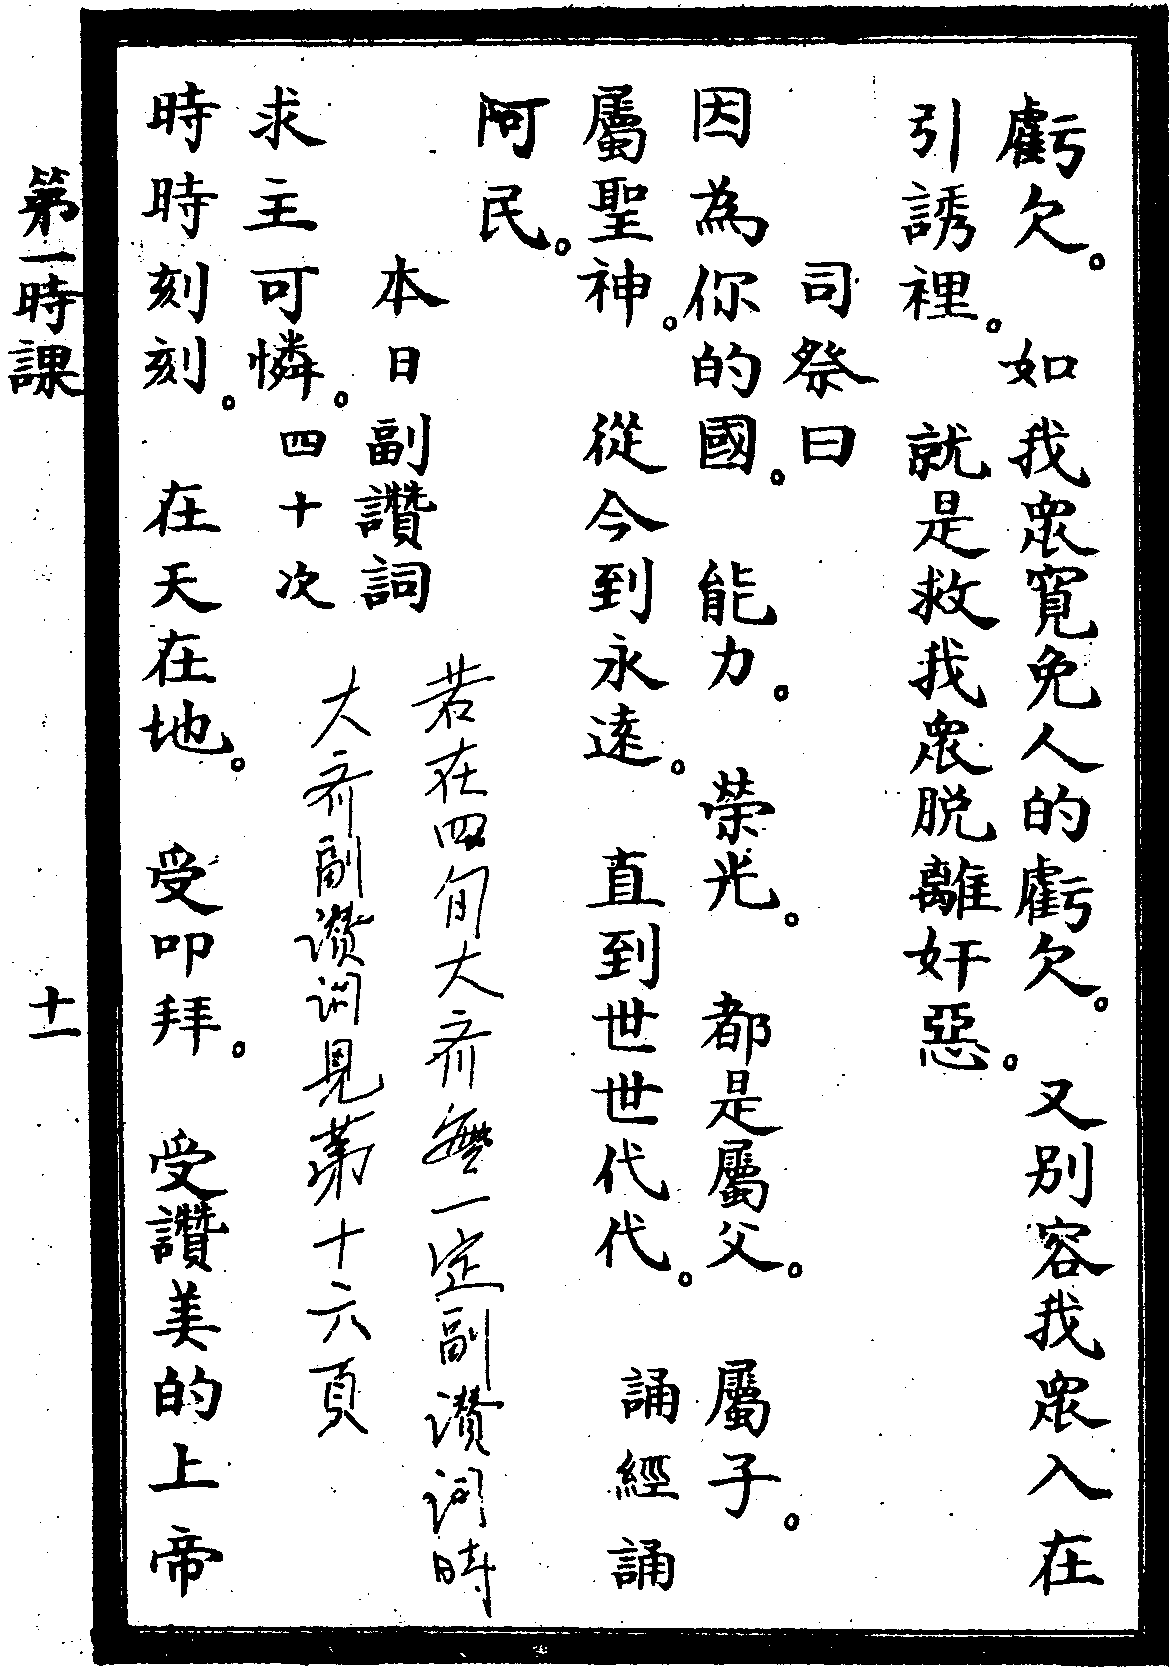 虧欠。如我眾寬免人的虧欠。又別容我眾入在
引誘裡。就是救我眾脱離奸惡。
司祭曰
因為你的國。能力。榮光。都是屬父。屬子。
屬聖神。從今到永遠。直到世世代代。誦經誦
阿民。
若在四旬大齋無一定副讚詞時
本日副讚詞
大齋副讚詞見第十六頁
求主可憐。四十次
時時刻刻。在天在地。受叩拜。受讚美的上帝
第一時課
十一